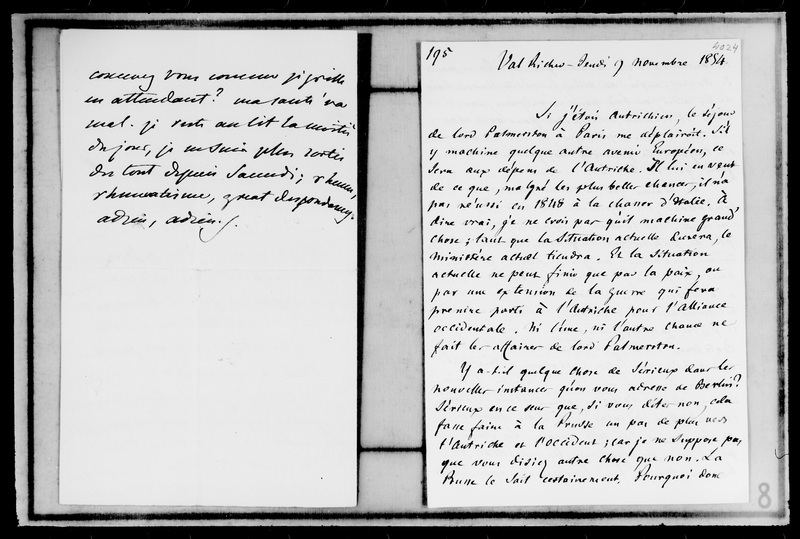 concevez vous comme je grille
en attendant? ma santé va
mal. je reste au lit la moitié
du jour, je ne suis plus sortie
du tout depuis Samedi; rhume,
rhumatisme, great despondency.
adieu, adieu.
195
4024
Val Richer - Jeudi 9 novembre 1854
Si j'étois Autrichien, le séjour
de lord Palmerston à Paris me déplairoit. S'il
y machine quelque autre avenir Européen, ce
sera aux dépens de l'Autriche. Il lui en veut
de ce que, malgré les plus belles chances, il n'a
pas réussi en 1848 à la chasser d'Italie. À
dire vrai, je ne crois pas qu'il machine grand'
chose; tant que la situation actuelle durera, le
ministère actuel tiendra. Et la situation
actuelle ne peut finir que par la paix, ou
par une extension de la guerre qui fera
prendre parti à l'Autriche pour l'Alliance
occidentale. Ni l'une, ni l'autre chance ne
fait les affaires de lord Palmerston.
Y a-t-il quelque chose de sérieux dans les
nouvelles instances qu'on vous adresse de Berlin?
Sérieux en ce sens que, si vous dites non, cela
fasse faire à la Prusse un pas de plus vers
l'Autriche et l'occident; car je ne suppose pas
que vous disiez autre chose que non. La
Prusse le sait certainement. Pourquoi donc
8